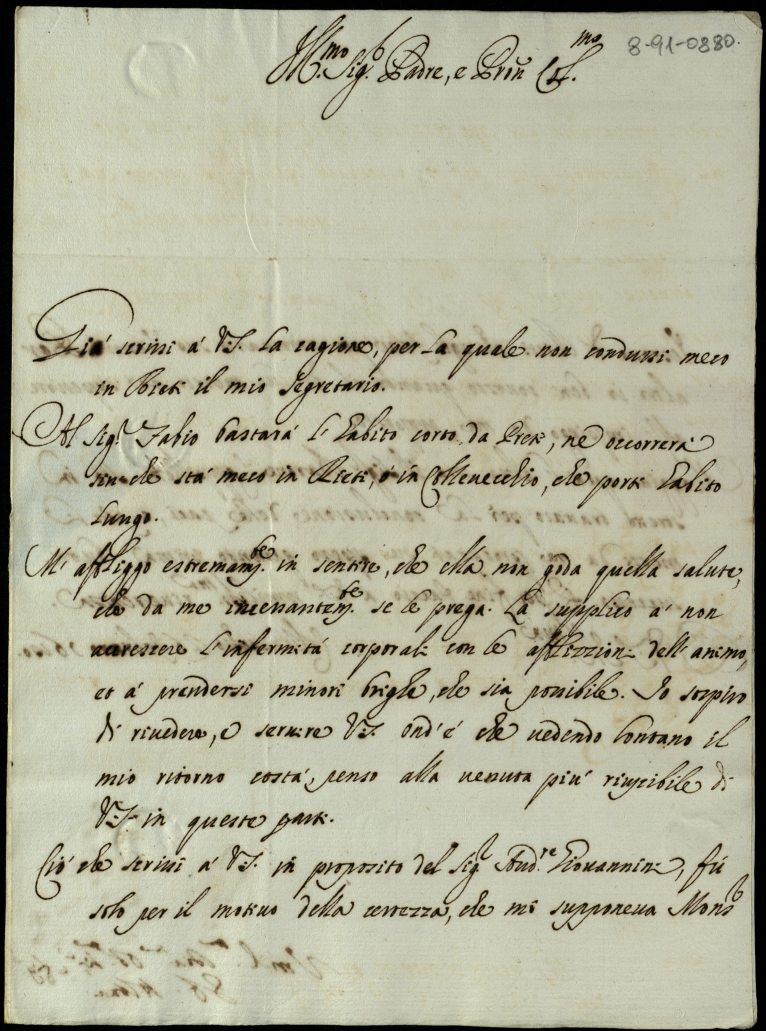 8-91-0880.
Ill.mo Sig.r Padre, e Pron Col.mo
Già scrissi á V.S. la cagione, per la quale non condussi meco
in Rieti il mio segretario.
Al Sig.r Fabio bastará l'habito corto da Prete, ne occorrerá
sin che stá meco in Rieti, ó in Collevecchio, che porti habito
lungo.
M'affliggo estremam.te in sentire, che ella non goda quella salute,
che da me incessantem.te se le prega. La supplico á non
accrescere l'infermitá corporali con le afflizzioni dell'animo,
et á prendersi minori brighe, che sia possibile. Io sospiro
di rivedere, e servire V.S. ond'é che vedendo lontano il
mio ritorno costá, penso alla venuta piú riuscibile di
V.S. in queste parti.
Ció che scrissi á V.S. in proposito del Sig.r Aud.re Giovannini, fú
solo per il motivo della certezza, che mi supponeva Mons.r